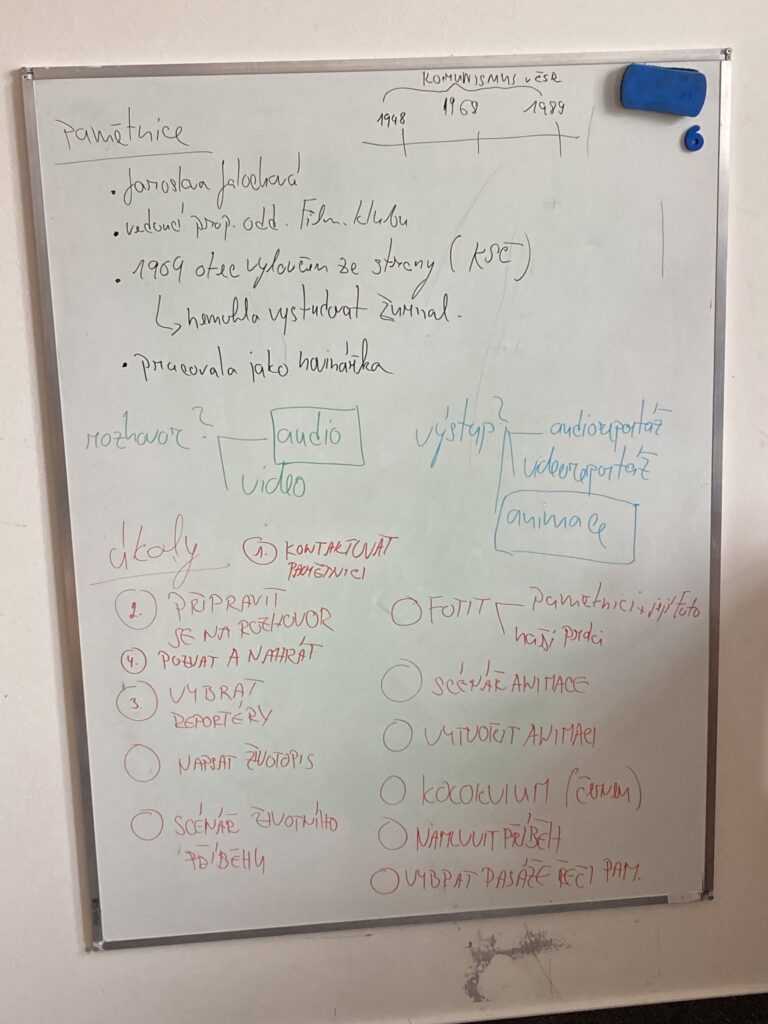 KOMUNISMUS v ČSR
1948 1968 1989
pamětnice
• Jaroslava
• vedoucí prop. odd. Film. klubu
• 1969 otec vyloučen ze strany (KSČ)
↳ nemohla vystudovat žurnal.
• pracovala jako
rozhovor? audio
video
výstup? audioreportáž
videoreportáž
animace
úkoly
1. KONTAKTOVAT
PAMĚTNICI
2. PŘIPRAVIT
SE NA ROZHOVOR
4. POZVAT A NAHRÁT
3. VYBRAT
REPORTÉRY
NAPSAT ŽIVOTOPIS
SCÉNÁŘ ŽIVOTNÍHO
PŘÍBĚHU
FOTIT pamětnici + její foto
naši práci
SCÉNÁŘ ANIMACE
VYTVOŘIT ANIMACI
KOLOKVIUM (červen)
NAMLUVIT PŘÍBĚH
VYBRAT PASÁŽE ŘEČI PAM.
6